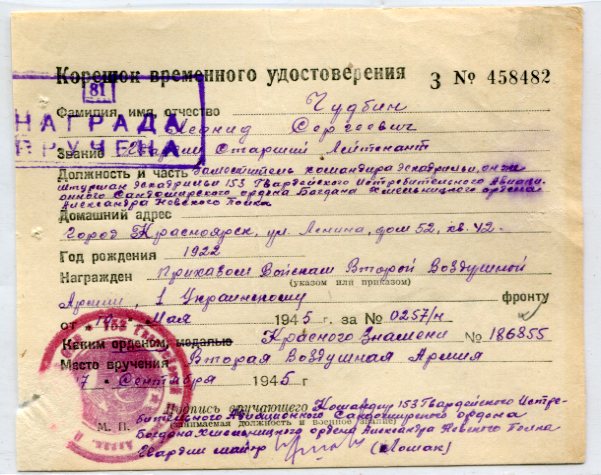 Корешок временного удостоверения З № 458482
81
НАГРАДА
ВРУЧЕНА
Фамилия имя отчество Чудбин
Леонид Сергеевич
Звание Гвардии Старший Лейтенант
Должность и часть Заместитель командира эскадрильи, он же
штурман эскадрильи 153 Гвардейского Истребительного Авиаци-
онного Сандомирского ордена Богдана Хмельницкого ордена
Александра Невского Полка
Домашний адрес
Город Красноярск, ул. Ленина, дом 52, кв. 42.
Год рождения 1922
Награжден Приказом Войскам Второй Воздушной
(указом или приказом)
Армии, 1 Украинскому фронту
от Мая 1945 г. за № 0257/н
Каким орденом, медалью Красного Знамени № 186855
Место вручения Вторая Воздушная Армия
17 Сентября 1945 г.
М. П. Подпись вручающего Командир 153 Гвардейского Истре-
бительного Авиационного Сандомирского ордена
(занимаемая должность и военное звание)
Богдана Хмельницкого ордена Александра Невского Полка
Гвардии майор (Ломак)